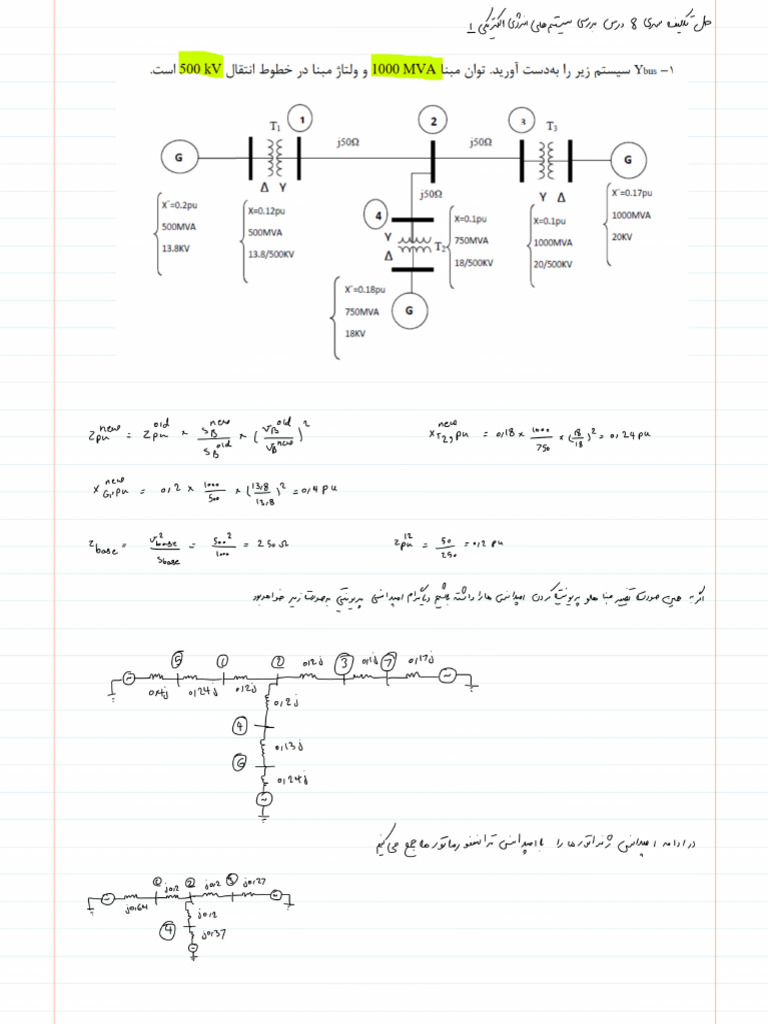 حل تکلیف سری 8 درس بررسی سیستم های انرژی الکتریکی 1
۱- Ybus سیستم زیر را به‌دست آورید. توان مبنا 1000 MVA و ولتاژ مبنا در خطوط انتقال 500 kV است.
T1 1 2 3 T3
j50Ω j50Ω
G G
Δ Y j50Ω Y Δ
X״=0.2pu
500MVA
13.8KV
X=0.12pu
500MVA
13.8/500KV
4
Y
Δ
T2
X=0.1pu
750MVA
18/500KV
X=0.1pu
1000MVA
20/500KV
X״=0.17pu
1000MVA
20KV
X״=0.18pu
750MVA
18KV
G
Zpu^new = Zpu^old × SB^new / SB^old × (VB^old / VB^new)^2
xT2,pu^new = 0,18 × 1000/750 × (18/18)^2 = 0,24 pu
xG1,pu^new = 0,2 × 1000/500 × (13,8/13,8)^2 = 0,4 pu
Zbase = V²base / Sbase = 500²/1000 = 250 Ω
Zpu^12 = 50/250 = 0,2 pu
اگر به همین صورت تغییر مبنا ها و پریونیت کردن امپدانس ها را داشته باشیم دیاگرام امپدانسی پریونیتی به صورت زیر خواهد بود
5 1 2 0,2j 3 0,1j 7 0,17j
0,4j 0,24j 0,2j
0,2j
4
0,13j
6
0,24j
در ادامه امپدانس ژنراتور ها را با امپدانس ترانسفورماتور ها جمع می کنیم
1 j0,2 2 j0,2 3 j0,27
j0,64
j0,2
4
j0,37